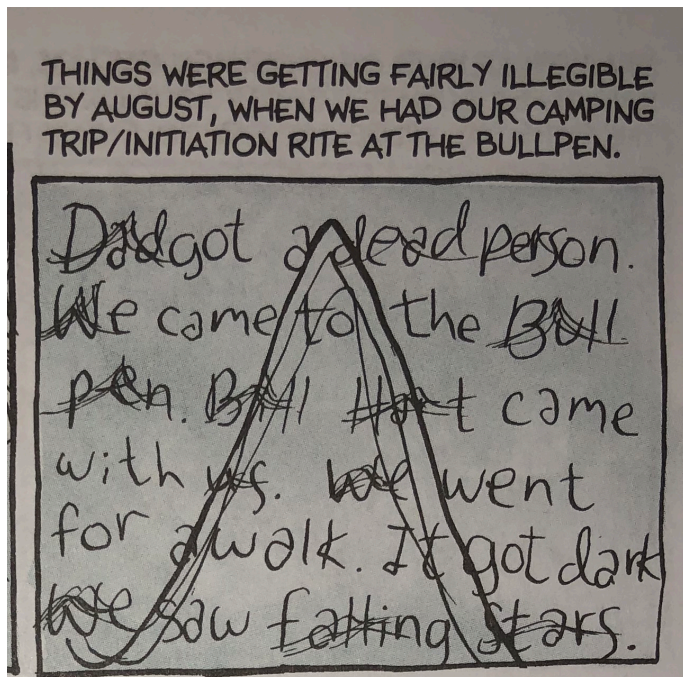 THINGS WERE GETTING FAIRLY ILLEGIBLE
BY AUGUST, WHEN WE HAD OUR CAMPING
TRIP/INITIATION RITE AT THE BULLPEN.
Dad got a dead person.
We came to the Bull
pen. Bill Hart came
with us. We went
for a walk. It got dark
We saw falling stars.